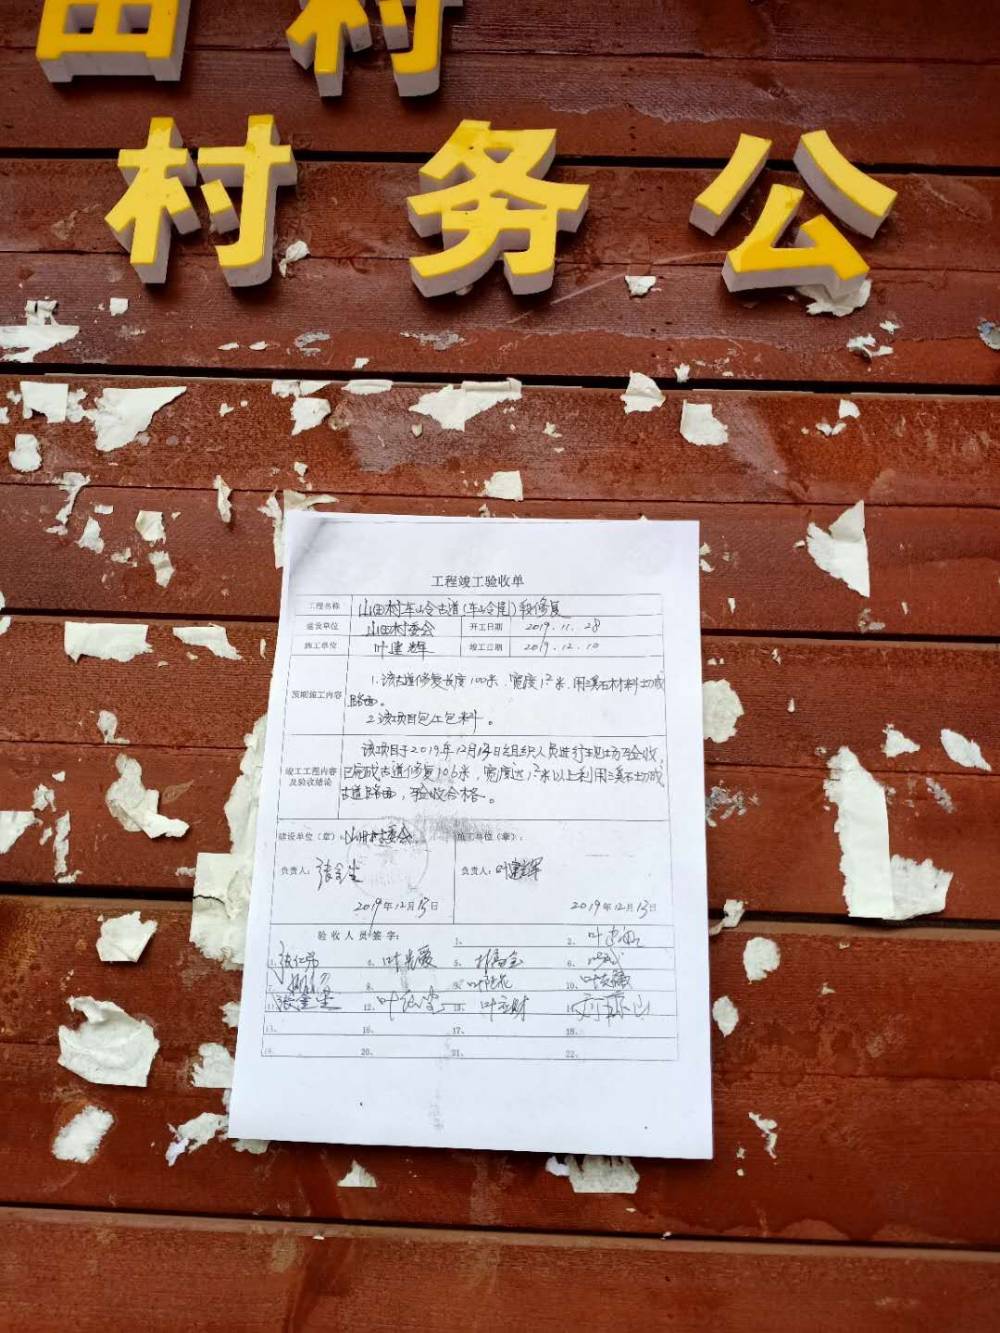 田村
村务公
工程竣工验收单
工程名称 山田村车岭古道(车岭尾)段修复
建设单位 山田村委会 开工日期 2019.11.28
施工单位 叶建辉 竣工日期 2019.12.10
预期施工内容
1.该古道修复长度100米,宽度1.2米,用溪石材料切成
路面。
2.该项目包工包料。
竣工工程内容
及验收结论
该项目于2019年12月13日组织人员进行现场验收,
已完成古道修复106米,宽度达1.2米以上利用溪石切成
古道路面,验收合格。
建设单位(章):山田村委会 施工单位(章):
负责人: 负责人:叶建辉
2019年12月13日 2019年12月13日
验收人员签字: 1、 2、
4、 5、 6、
7、 8、 9、 10、
11、 12、 13、 14、
15、 16、 17、 18、
19、 20、 21、 22、